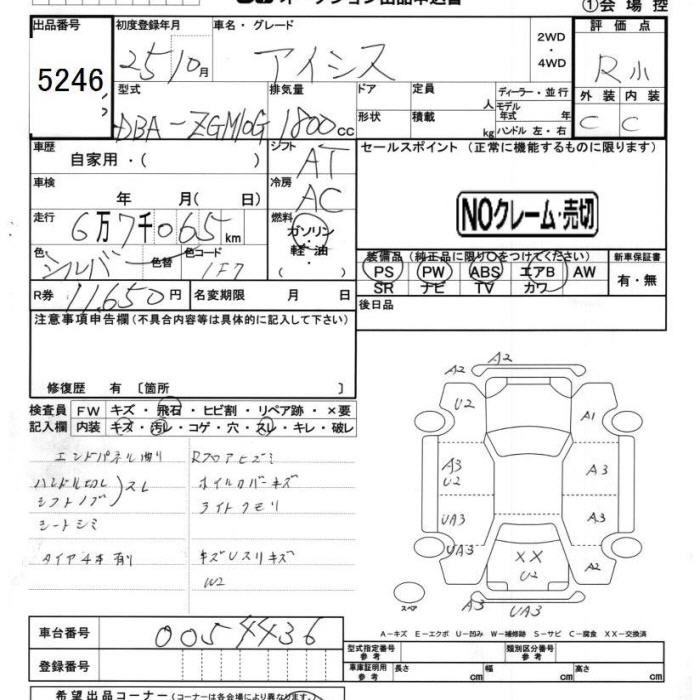 オークション出品申込書
①会場控
出品番号
5246
初度登録年月
25 10月
車名・グレード
アイシス
2WD
・
4WD
評価点
R小
外装 内装
C C
型式
DBA-ZGM10G
排気量
1800cc
ドア
定員
人
ディーラー・並行
モデル
年式 年
形状
積載
kg
ハンドル 左・右
車歴
自家用・( )
シフト
AT
セールスポイント (正常に機能するものに限ります)
車検
年 月( 日)
冷房
AC
NOクレーム・売切
走行
6万7千065km
燃料
ガソリン
・
軽油
( )
色
シルバー
色替
色コード
1F7
装備品(純正品に限り○をつけてください)
新車保証書
PS PW ABS エアB AW
SR ナビ TV カワ
有・無
R券
11,650円
名変期限 月 日
後日品
注意事項申告欄(不具合内容等は具体的に記入して下さい)
修復歴 有〔箇所 〕
検査員
記入欄
FW キズ・飛石・ヒビ割・リペア跡・×要
内装 キズ・汚レ・コゲ・穴・スレ・キレ・破レ
エンドパネル曲り
ハンドル切レ
シフトノブ
スレ
シートシミ
タイヤ4本有り
Rフロアヒズミ
ホイルカバーキズ
ライトクモリ
キズUスリキズ
W2
A2
A2
U2
A1
A3
U2
A3
UA3
A3
UA3
A2
XX
U2
スペア
A3
UA3
A-キズ E-エクボ U-凹み W-補修跡 S-サビ C-腐食 XX-交換済
車台番号
0054436
登録番号
型式指定番号
参考
類別区分番号
参考
車庫証明用
参考
長さ cm
幅 cm
高さ cm
希望出品コーナー(コーナーは各会場により異なります)